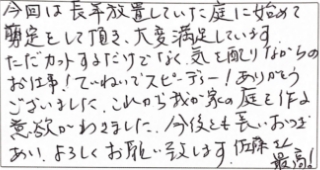 今回は長年放置していた庭に始めて
剪定をして頂き、大変満足しています。
ただカットするだけでなく、気を配りながらの
お仕事!ていねいでスピーデー!ありがとう
ございました。これから我が家の庭を作る
意欲がわきました。今後とも長いおつき
あい、よろしくお願い致します。佐藤さん
最高!